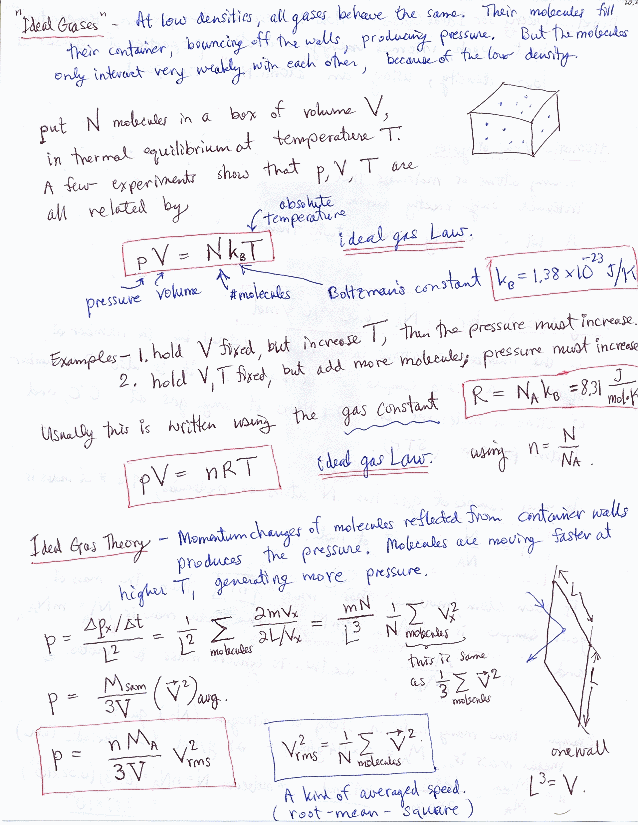 "Ideal Gases" - At low densities, all gases behave the same. Their molecules fill
their container, bouncing off the walls, producing pressure. But the molecules
only interact very weakly with each other, because of the low density.
put N molecules in a box of volume V,
in thermal equilibrium at temperature T.
A few experiments show that p, V, T are
all related by
absolute
temperature
pV = Nk_BT
ideal gas Law.
pressure volume #molecules
Boltzman's constant
k_B = 1.38 × 10^-23 J/K
Examples - 1. hold V fixed, but increase T, then the pressure must increase.
2. hold V, T fixed, but add more molecules, pressure must increase
Usually this is written using the gas constant
R = N_A k_B = 8.31 J/mol·K
pV = nRT
ideal gas Law.
using n = N/N_A.
Ideal Gas Theory - Momentum changes of molecules reflected from container walls
produces the pressure. Molecules are moving faster at
higher T, generating more pressure.
p = (Δp_x/Δt)/L² = 1/L² Σ_molecules 2mv_x/(2L/v_x) = mN/L³ 1/N Σ_molecules v_x²
this is same
as 1/3 Σ_molecules v⃗²
L
L
p = M_sam/3V (v⃗²)avg.
p = nM_A/3V v²_rms
v²_rms = 1/N Σ_molecules v⃗².
one wall
L³ = V.
A kind of averaged speed.
(root-mean-square)